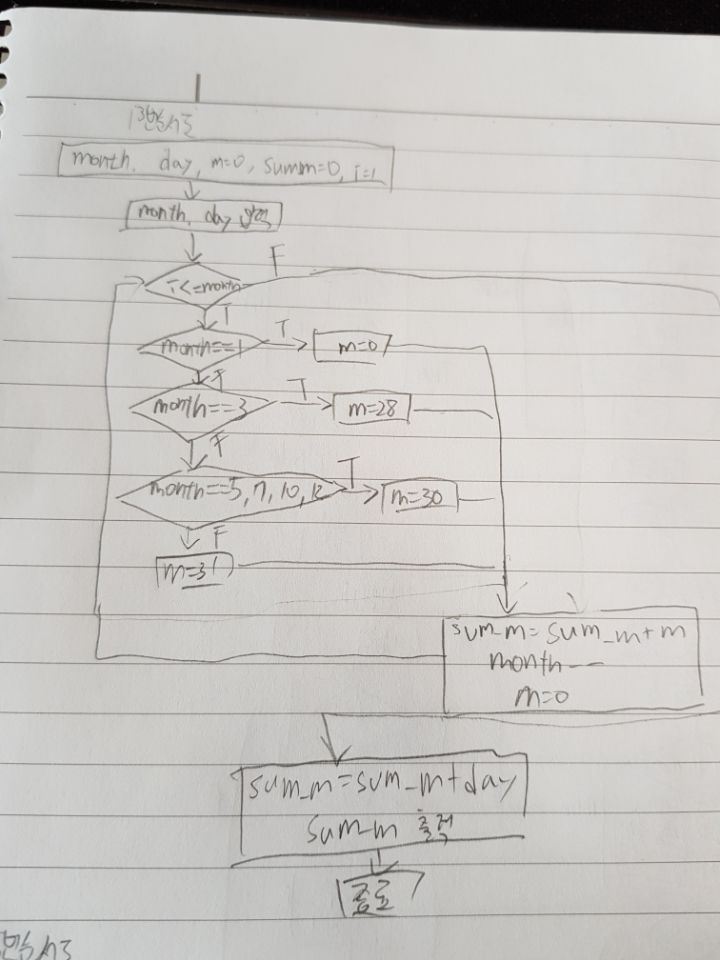 month, day, m=0, summ=0, i=1
month, day 입력
i<=month
F
T
month==1
T
m=0
F
month==3
T
m=28
F
month==5, 7, 10, 12
T
m=30
F
m=31
sum_m=sum_m+m
month--
m=0
sum_m=sum_m+day
sum_m 출력
종료